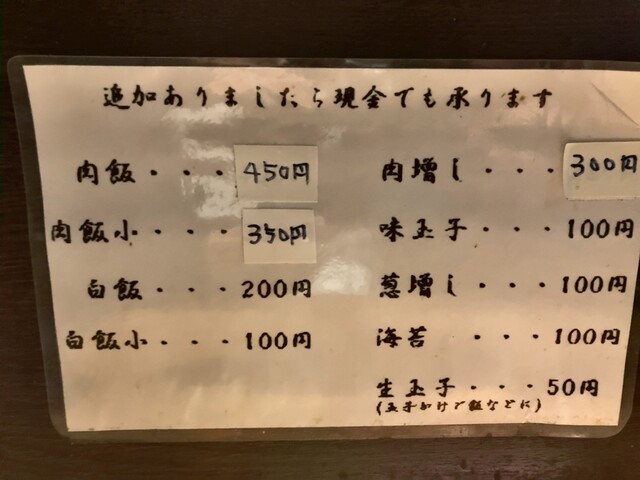 追加ありましたら現金でも承ります
肉飯・・・450円
肉飯小・・・350円
白飯・・・200円
白飯小・・・100円
肉増し・・・300円
味玉子・・・100円
葱増し・・・100円
海苔・・・100円
生玉子・・・50円
(玉子かけご飯などに)